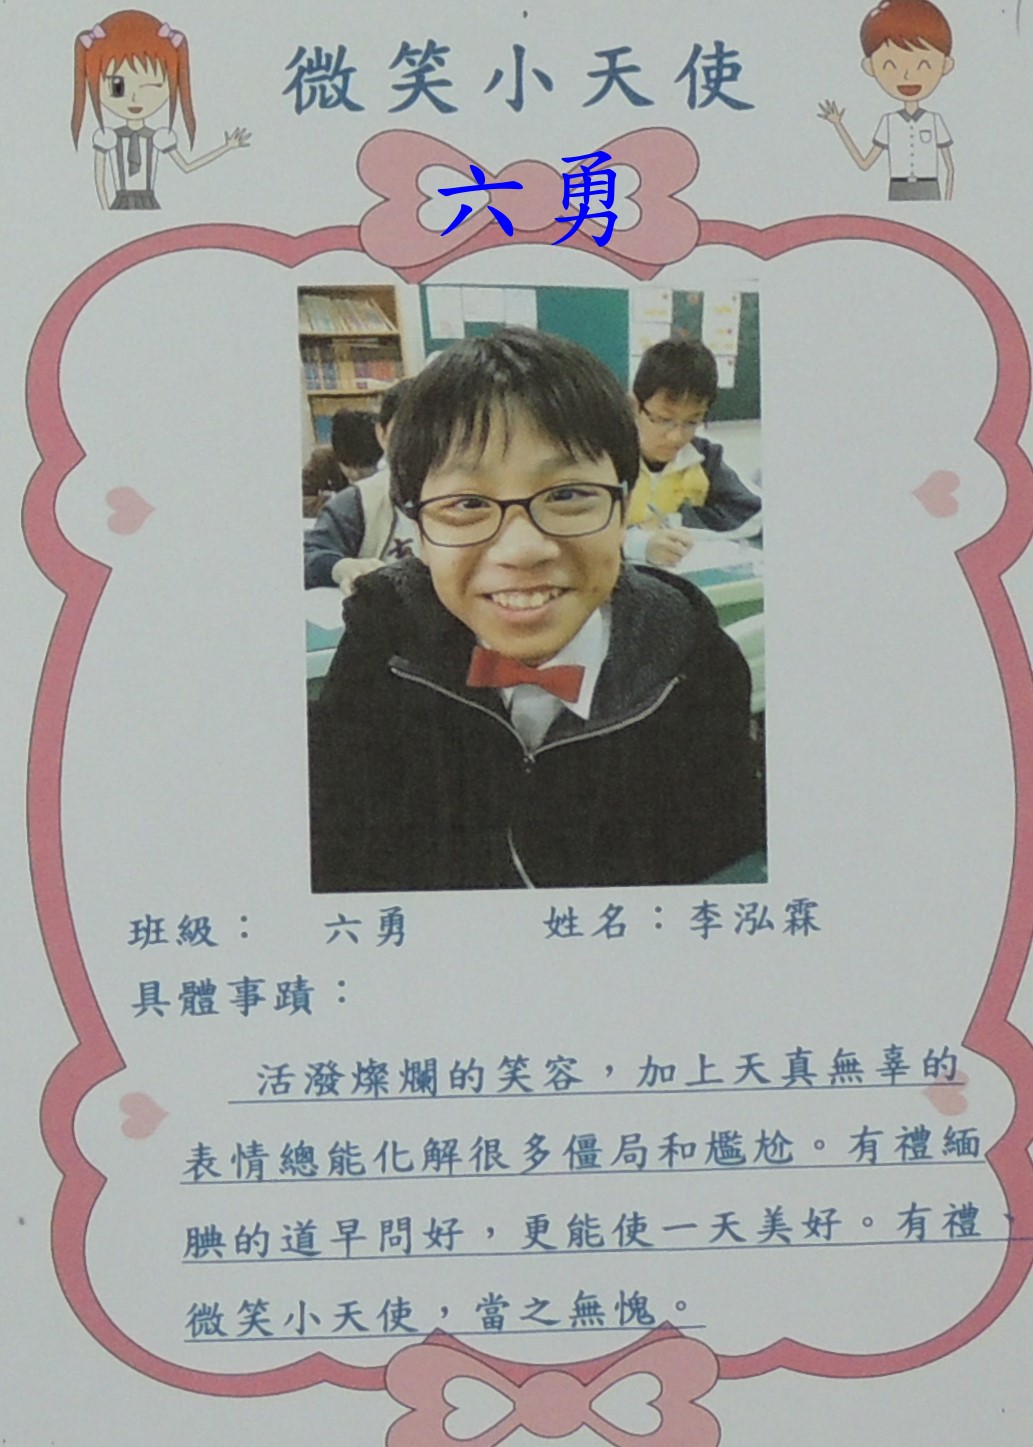 微笑小天使
六勇
班級： 六勇 姓名：李泓霖
具體事蹟：
活潑燦爛的笑容，加上天真無辜的
表情總能化解很多僵局和尷尬。有禮緬
腆的道早問好，更能使一天美好。有禮、
微笑小天使，當之無愧。